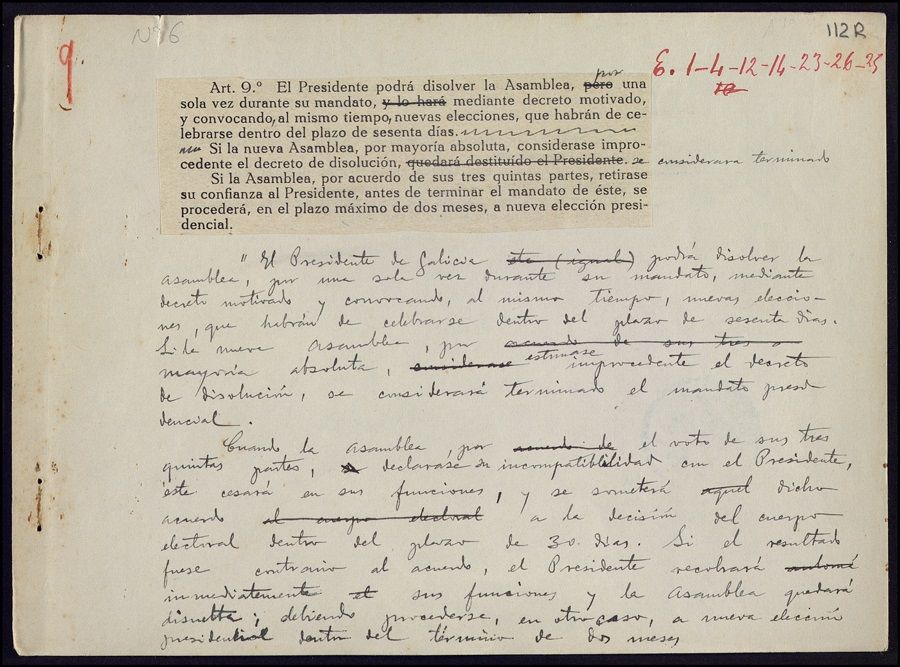 Nº 6
112R
9
E. 1-4-12-14-23-26-25
10
Art. 9.º El Presidente podrá disolver la Asamblea, pero por una
sola vez durante su mandato, y lo hará mediante decreto motivado,
y convocando, al mismo tiempo, nuevas elecciones, que habrán de ce-
lebrarse dentro del plazo de sesenta días.
Si la nueva Asamblea, por mayoría absoluta, considerase impro-
cedente el decreto de disolución, quedará destituído el Presidente. se considerara terminado
Si la Asamblea, por acuerdo de sus tres quintas partes, retirase
su confianza al Presidente, antes de terminar el mandato de éste, se
procederá, en el plazo máximo de dos meses, a nueva elección presi-
dencial.
" El Presidente de Galicia ste (igual) podrá disolver la
asamblea, por una sola vez durante su mandato, mediante
decreto motivado y convocando, al mismo tiempo, nuevas eleccio-
nes, que habrán de celebrarse dentro del plazo de sesenta días.
Si la nueva Asamblea, por acuerdo de sus tres
mayoría absoluta, considerase estimase improcedente el decreto
de disolución, se considerará terminado el mandato presi-
dencial.
Cuando la asamblea, por acuerdo de el voto de sus tres
quintas partes, declarase su incompatibilidad con el Presidente,
éste cesará en sus funciones, y se someterá aquel dicho
acuerdo al cuerpo electoral a la decisión del cuerpo
electoral dentro del plazo de 30 dias. Si el resultado
fuese contrario al acuerdo, el Presidente recobrará automá
inmediatamente el sus funciones y la Asamblea quedará
disuelta; debiendo procederse, en otro caso, a nueva elección
presidencial dentro del término de dos meses